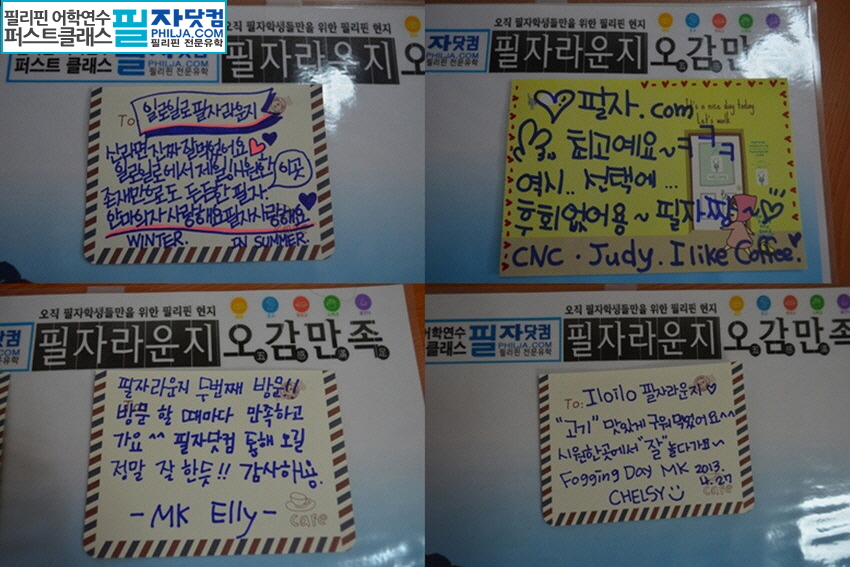 필리핀 어학연수
퍼스트클래스
필자닷컴
PHILJA.COM
필리핀 전문유학
오직 필자학생들만을 위한 필리핀 현지
퍼스트 클래스
PHILJA.COM
필리핀 전문유학
필자라운지 오
To 일로일로필자라운지
신라면 진짜 잘먹었어요
일로일로에서 제일!시원한 이곳
존재만으로도 든든한 필자.
안마의자 사랑해요 필자사랑해요
WINTER. IN SUMMER.
오직 필자학생들만을 위한 필리핀 현지
자닷컴
PHILJA.COM
필리핀 전문유학
필자라운지 오감만
필자.com
It's a nice day today
Let's walk
최고예요~ㅋㅋㅋ
역시.. 선택에 ...
후회없어용~ 필자짱~
CNC. Judy. I like Coffee.
오직 필자학생들만을 위한 필리핀 현지
닷컴
PHILJA.COM
필리핀 전문유학
필자라운지 오감만족
필자라운지 두번째 방문!!
방문 할 때마다 만족하고
가요^^ 필자닷컴 통해 오길
정말 잘 한듯!! 감사해용.
- MK Elly -
cafe
오직 필자학생들만을 위한 필리핀 현지
어학연수
클래스
필자닷컴
PHILJA.COM
필리핀 전문유학
필자라운지 오감만족
To: Iloilo 필자라운지
"고기" 맛있게 구워먹었어요^^
시원한곳에서 "잘" 놀다가요~
Fogging Day MK 2013.
4.27
CHELSY
cafe